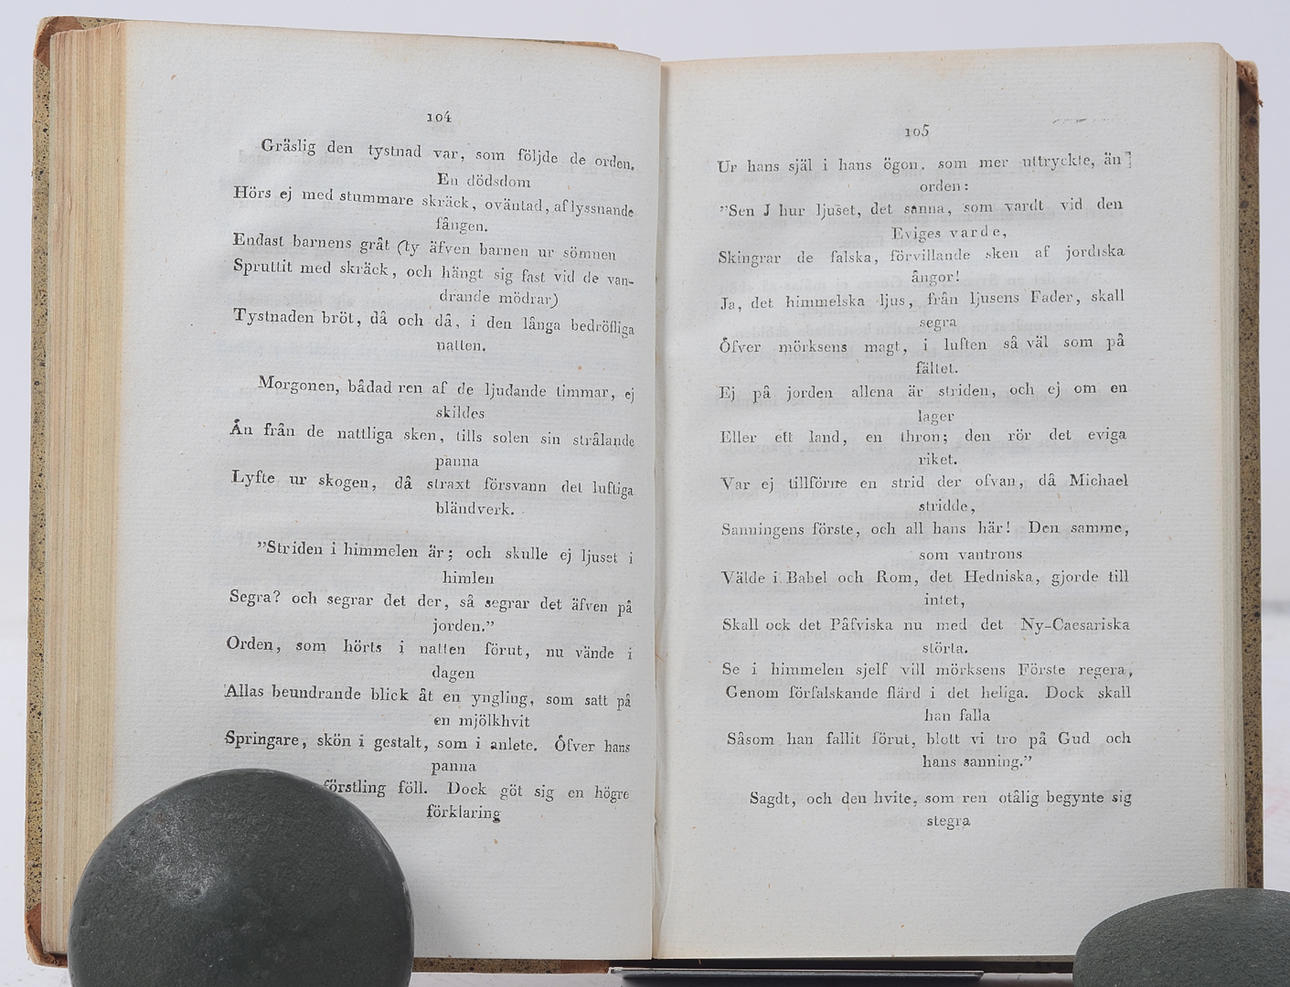 104
Gräslig den tystnad var, som följde de orden.
En dödsdom
Hörs ej med stummare skräck, oväntad, af lyssnande
fången.
Endast barnens gråt (ty äfven barnen ur sömnen
Spruttit med skräck, och hängt sig fast vid de van-
drande mödrar)
Tystnaden bröt, då och då, i den långa bedröfliga
natten.
Morgonen, bådad ren af de ljudande timmar, ej
skildes
Än från de nattliga sken, tills solen sin strålande
panna
Lyfte ur skogen, då straxt försvann det luftiga
bländverk.
”Striden i himmelen är; och skulle ej ljuset i
himlen
Segra? och segrar det der, så segrar det äfven på
jorden.”
Orden, som hörts i natten förut, nu vände i
dagen
Allas beundrande blick åt en yngling, som satt på
en mjölkhvit
Springare, skön i gestalt, som i anlete. Öfver hans
panna
förstling föll. Dock göt sig en högre
förklaring
105
Ur hans själ i hans ögon, som mer uttryckte, än
orden:
”Sen J hur ljuset, det sanna, som vardt vid den
Eviges varde,
Skingrar de falska, förvillande sken af jordiska
ångor!
Ja, det himmelska ljus, från ljusens Fader, skall
segra
Öfver mörksens magt, i luften så väl som på
fältet.
Ej på jorden allena är striden, och ej om en
lager
Eller ett land, en thron; den rör det eviga
riket.
Var ej tillförne en strid der ofvan, då Michael
stridde,
Sanningens förste, och all hans här! Den samme,
som vantrons
Välde i Babel och Rom, det Hedniska, gjorde till
intet,
Skall ock det Påfviska nu med det Ny-Caesariska
störta.
Se i himmelen sjelf vill mörksens Förste regera,
Genom förfalskande flärd i det heliga. Dock skall
han falla
Såsom han fallit förut, blott vi tro på Gud och
hans sanning.”
Sagdt, och den hvite, som ren otålig begynte sig
stegra